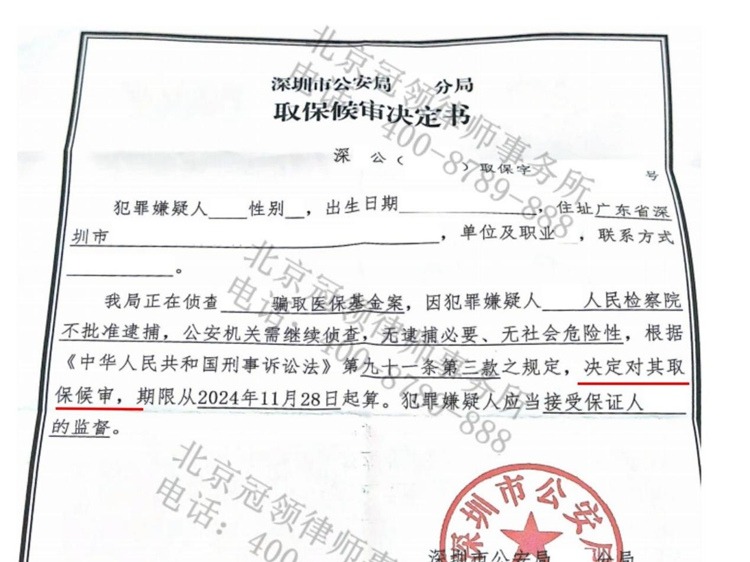 深圳市公安局 分局
取保候审决定书
深 公（ ）取保字 号
犯罪嫌疑人 性别 ，出生日期 ，住址广东省深
圳市 ，单位及职业 ，联系方式
。
我局正在侦查 骗取医保基金案，因犯罪嫌疑人 人民检察院
不批准逮捕，公安机关需继续侦查，无逮捕必要、无社会危险性，根据
《中华人民共和国刑事诉讼法》第九十一条第三款之规定，决定对其取
保候审，期限从2024年11月28日起算。犯罪嫌疑人应当接受保证人
的监督。
深圳市公安局 分局
深圳市公安局
北京冠领律师事务所
电话：400-8789-888
北京冠领律师事务所
电话：400-8789-888
北京冠领律师事
电话：400